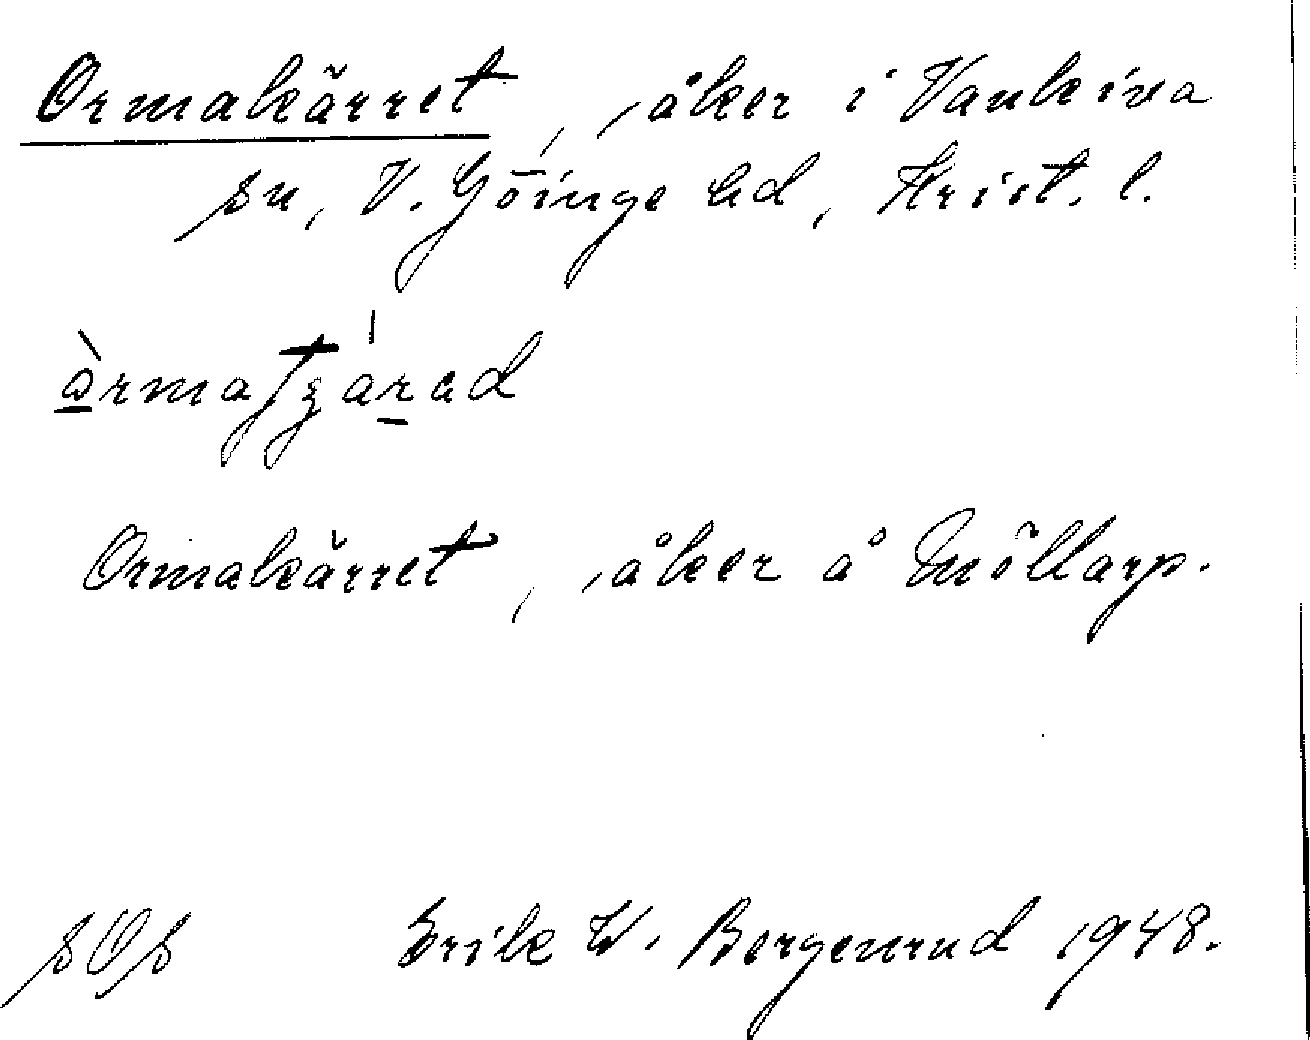 Ormakärret, åker i Vankiva
sn, V. Göinge hd, Krist. l.
Ormakärret, åker å Möllarp.
sOs Erik W. Bergenrud 1948.